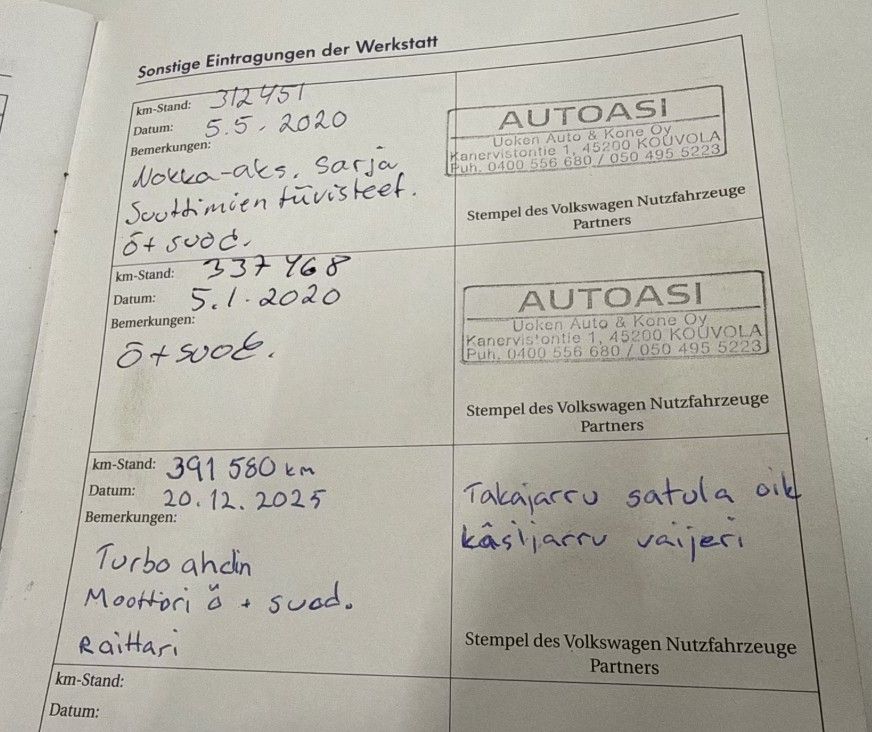 Sonstige Eintragungen der Werkstatt
km-Stand: 312451
Datum: 5.5.2020
Bemerkungen:
Nokka-aks. Sarja
Suuttimien tiivisteet.
ö+suod.
AUTOASI
Uoken Auto & Kone Oy
Kanervistontie 1, 45200 KOUVOLA
Puh. 0400 556 680 / 050 495 5223
Stempel des Volkswagen Nutzfahrzeuge
Partners
km-Stand: 337468
Datum: 5.1.2020
Bemerkungen:
ö+suod.
AUTOASI
Uoken Auto & Kone Oy
Kanervistontie 1, 45200 KOUVOLA
Puh. 0400 556 680 / 050 495 5223
Stempel des Volkswagen Nutzfahrzeuge
Partners
km-Stand: 391 580 km
Datum: 20.12.2025
Bemerkungen:
Turbo ahdin
Moottori ö + suod.
Raittari
Takajarru satula oik
käsijarru vaijeri
Stempel des Volkswagen Nutzfahrzeuge
Partners
km-Stand:
Datum: